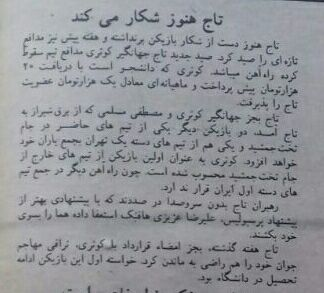 تاج هنوز شکار می کند
تاج هنوز دست از شکار بازیکن برنداشته و هفته پیش نیز مدافع
تازه‌ای را صید کرد. صید جدید تاج جهانگیر کوثری مدافع تیم سقوط
کرده راه‌آهن میباشد. کوثری که دانشجو است با دریافت ۲۰
هزارتومان پیش پرداخت و ماهیانه‌ای معادل یک هزارتومان عضویت
تاج را پذیرفت.
تاج بجز جهانگیر کوثری و مصطفی مسلمی که از برق شیراز به
تاج آمد، دو بازیکن دیگر یکی از تیم های حاضر در جام
تخت‌جمشید و یکی هم از تیم های دسته یک تهران بجمع یاران خود
خواهد افزود. کوثری به عنوان اولین بازیکن از تیم های خارج از
جام تخت جمشید محسوب شده است. چون راه‌آهن دیگر در جمع تیم
های دسته اول ایران قرار ندارد.
رهبران تاج بدون سروصدا در صددند که با پیشنهادی بهتر از
پیشنهاد پرسپولیس، علیرضا عزیزی هافبک استعفا داده هما را بسوی
خود بکشند.
تاج هفته گذشته، بجز امضاء قرارداد با کوثری، نراقی مهاجم
جوان خود را هم راضی به ماندن کرد. خواسته اول این بازیکن ادامه
تحصیل در دانشگاه بود.